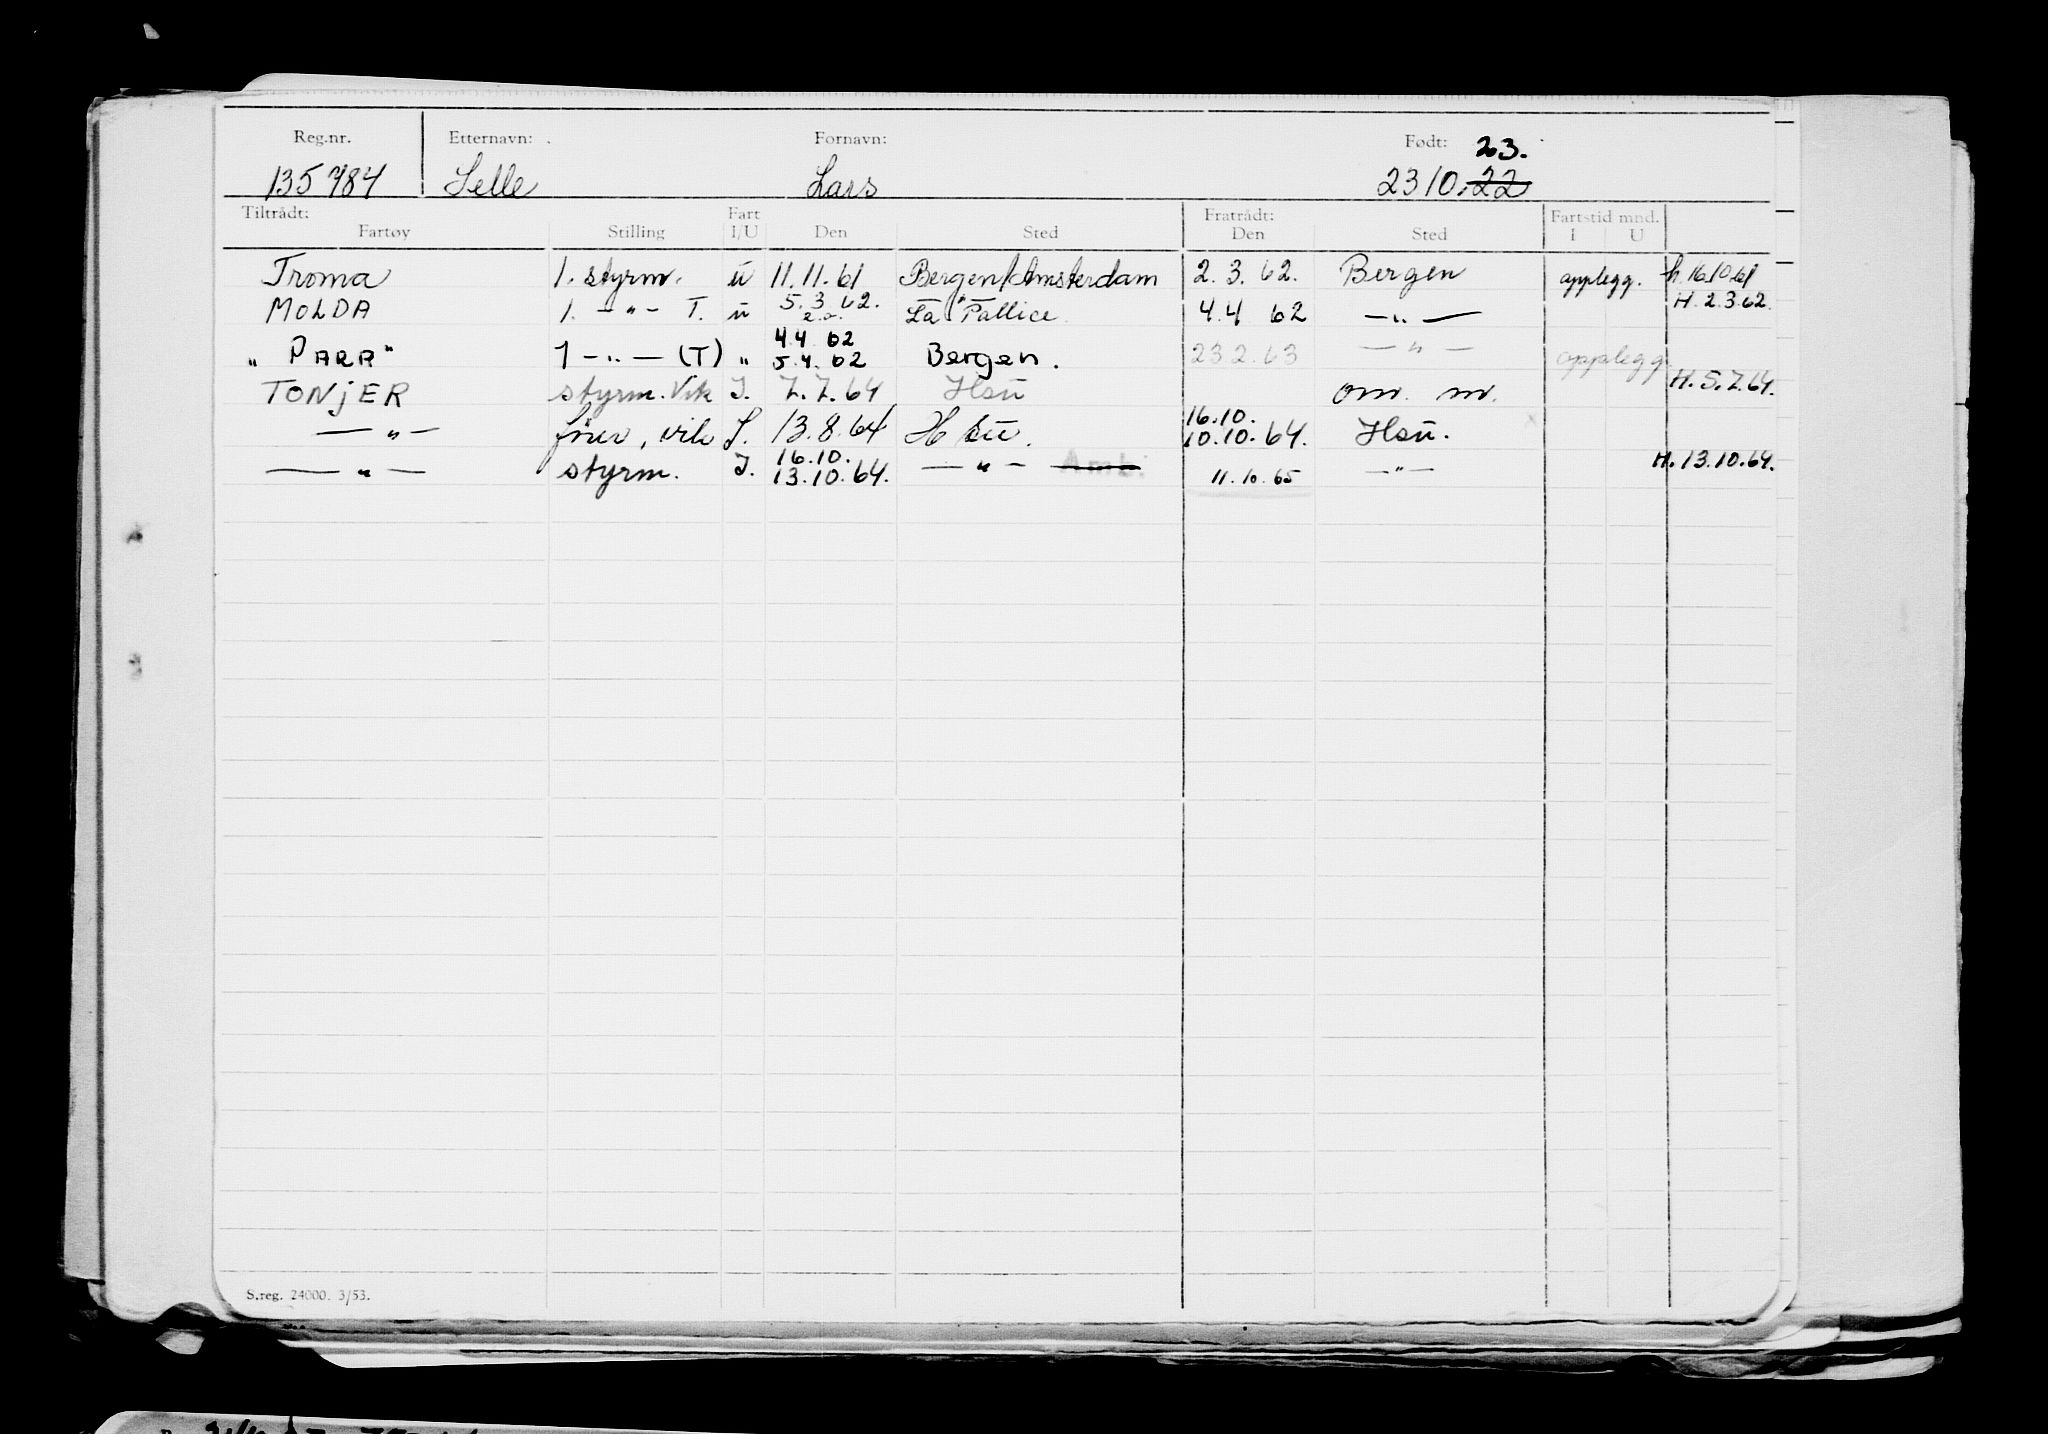 Reg.nr. Etternavn: Fornavn: Født: 23.
135784 Selle Lars 23 10. 22
Tiltrådt: Fart Fratrådt: Fartstid mnd.
Fartøy Stilling I/U Den Sted Den Sted I U
Troma 1. styrm. u 11.11.61 Bergen/Amsterdam 2.3.62. Bergen applegg. h.16.10.61
MOLDA 1. -"- T. u 5.3.62. La Pallice 4.4 62 -"- H.2.3.62.
4.4 62
"PARA" 1 -"- (T) " 5.4.62 Bergen. 23 2.63 -"- opplegg.
TONJER styrm. Vik I. 7.7.64 Hsu om. m. H.5.7.64.
16.10.
-"- fører, vik I. 13.8.64 Hsu. 10.10.64. Hsu.
16.10.
-"- styrm. I. 13.10.64. -"- Amb. 11.10.65 -"- H.13.10.64.
S.reg. 24000. 3/53.